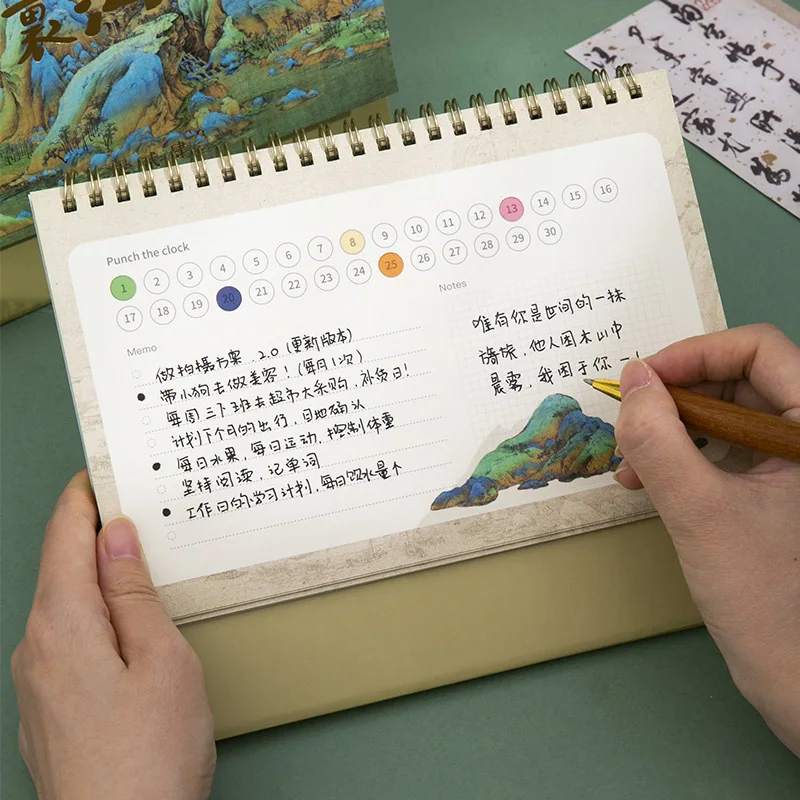 Punch the clock
1 2 3 4 5 6 7 8 9 10 11 12 13 14 15 16
17 18 19 20 21 22 23 24 25 26 27 28 29 30
Memo
做拍摄方案, 2.0 (更新版本)
带小狗去做美容! (每月1次)
每周三下班去超市大采购, 补货日!
计划下个月的出行, 目地确认
每日水果, 每日运动, 控制体重
坚持阅读, 记单词
工作日的学习计划, 每日饮水量个
Notes
唯有你是世间的一抹
旖旎, 他人困本山中
晨雾, 我困于你一!